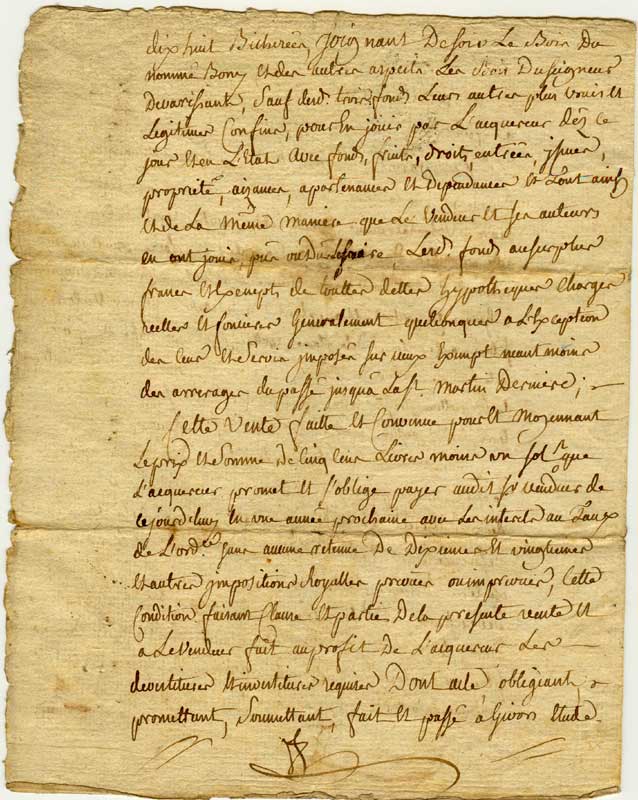 dixhuit Bicherées, joignant De soir Le Bois Du
nommé Bony Et des autres aspects Les Bois Du seigneur
De varissant, Sauf desd. trois fonds Leurs autres plus vrais Et
Legitimes Confins, pour En jouir par L'acquereur dés ce
jour Et en L'Etat avec fonds, fruits, droits, entrées, issues,
proprieté, aizances, apartenances Et Dependances Et tout ainsy
Et de La même maniere que Le Vendeur Et ses auteurs
en ont jouir, pû ou Dû faire, Lesd. fonds au surplus
francs Et Exempts de touttes dettes hypothecques Charges
reelles Et fonciere Generalement quelconques a L'Exception
des Cens Et Servis imposés sur iceux Exempt neantmoins
des arrerages du passé jusqua La st. Martin Derniere; —
Cette Vente faitte Et Convenue pour Et Moyennant
Le prix Et Somme de Cinq Cens Livres moins un sol, que
L'acquereur promet Et s'oblige payer audit sr. vendeur de
cejourdhuy En une année prochaine avec Les interets au Taux
de L'ord.ce Sans aucune retenue De Dixiemes Et vingtiemes
Et autres impositions Royalles prevues ou imprevues, Cette
Condition faisant Clause Et partie De la presente vente Et
a Le Vendeur fait au profit de L'acquereur Les —
devestitures Et investitures requises Dont acte obligeant,
promettant, Soumettant, fait Et passé à Givors Etude